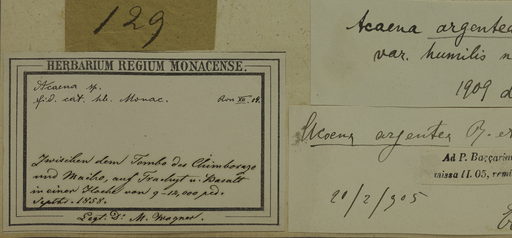 129
HERBARIUM REGIUM MONACENSE.
Acaena sp.
fid. cat. hb. Monac.
Zwischen dem Tambo des Chimborazo
und Mocha, auf Trachyt u. Basalt
in einer Hoehe von 9-12,000 ped.
Septbr. 1858.
Legt. Dr. M. Wagner.
Acaena argentea
var. humilis
1909
Acaena argentea R. et
Ad P. Baccarin
missa II. 05, remi
20/2/905